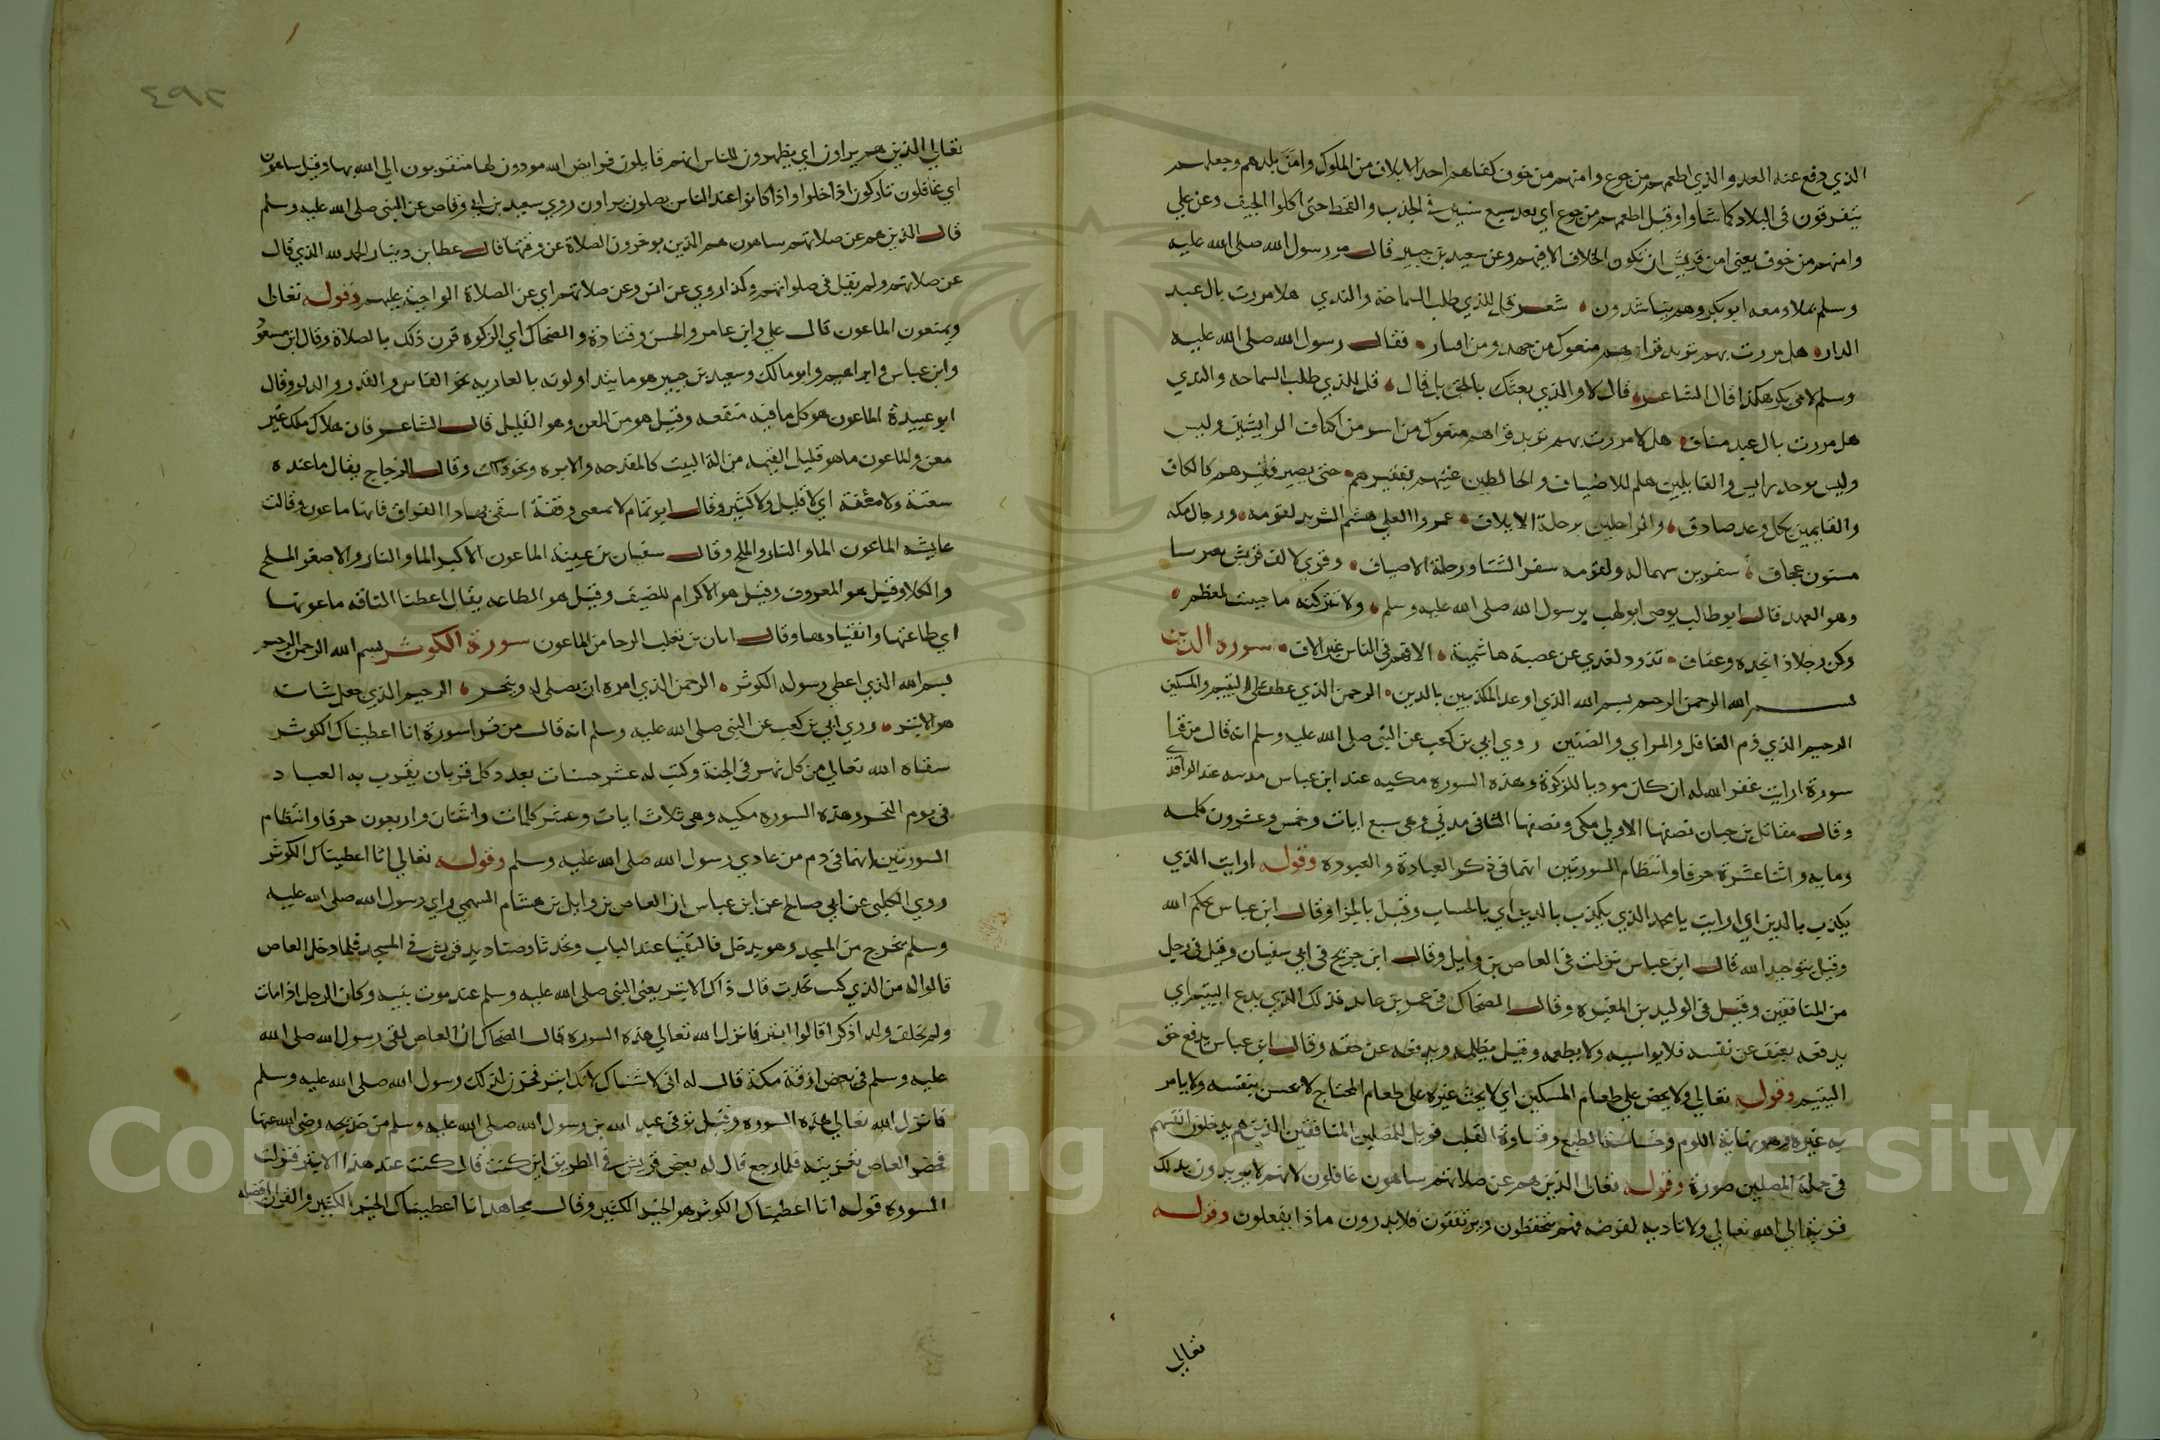 الذي دفع عنه العدو والذي اطعمهم من جوع وامنهم من خوف كفاهم احد الايلاف من الملوك وامن بلدهم وجعلهم
يتفرقون في البلاد كما شاوا وقيل اطعمهم من جوع اي بعد سبع سنين في الجدب والقحط حتى اكلوا الجيف وعن علي
وامنهم من خوف يعني امن قريش ان تكون الخلافة الا فيهم وعن سعيد بن جبير قال مر رسول الله صلى الله عليه
وسلم بملا ومعه ابو بكر وهم يتناشدون شعر قل للذي طلب السماحة والندي هلا مررت بال عبد
الدار هل مررت بهم تريد قراهم منعوك من جهد ومن اقتار فقال رسول الله صلى الله عليه
وسلم لابي بكر هكذا قال الشاعر قال لا والذي بعثك بالحق بل قال قل للذي طلب السماحه والندي
هل مررت بال عبد مناف هلا مررت بهم تريد قراهم منعوك من اسر من اكناف الرايشين وليس
وليس يوجد رايس والقايلين هلم للاضياف والخالطين غنيهم بفقيرهم حتى يصير فقيرهم كالكاف
والقايمين بكل وعد صادق والراحلين برحلة الايلاف عمرو العلي هشم الثريد لقومه ورجال مكه
مسنتون عجاف سفرين سنهما له ولقومه سفر الشتا ورحلة الاصياف وقري لالف قريش
وهو العهد قال ابو طالب يوصي ابو لهب برسول الله صلى الله عليه وسلم ولا تتركنه ما حييت لمعظم
وكن رجلا ذا نجده وعفاف تذود لعدي عن عصبة هاشمية الافهم في الناس خير الاف سورة الدين
بسم الله الرحمن الرحيم بسم الله الذي اوعد المكذبين بالدين الرحمن الذي عطف على اليتيم والمسكين
الرحيم الذي ذم الغافل والمراي والضنين روي ابي بن كعب عن النبي صلى الله عليه وسلم انه قال من قرا
سورة ارايت غفر الله له ان كان موديا للزكوة وهذه السورة مكيه عند ابن عباس مدنيه عند الواقدي
وقال مقاتل بن حيان نصفها الاولي مكي ونصفها الثاني مدني وهي سبع ايات وخمس وعشرون كلمه
ومايه واثنا عشرة حرفا وانتظام السورتين انهما في ذكر العبادة والعبوده وقوله ارايت الذي
يكذب بالدين اي ارايت يا محمد الذي يكذب بالدين اي بالحساب وقيل بالجزا وقال ابن عباس بحكم الله
وقيل بتوحيد الله قال ابن عباس نزلت في العاص بن وايل وقال ابن جريج في ابي سفيان وقيل في رجل
من المنافقين وقيل في الوليد بن المغيره وقال الضحاك في عمر بن عايد فذلك الذي يدع اليتيم اي
يدفعه بعنف عن نفسه فلا يواسيه ولا يطعمه وقيل يظلمه ويدفعه عن حقه وقال ابن عباس يدفع حق
اليتيم وقوله تعالى ولا يحض على طعام المسكين اي لا يحث غيره على طعام المحتاج لا يحسن بنفسه ولا يامر
به غيره وهو نهاية اللوم وخساسة الطبع وقساوة القلب فويل للمصلين المنافقين الذين هم يدخلون انفسهم
في جملة المصلين صورة وقوله تعالى الذين هم عن صلاتهم ساهون غافلون لانهم لا يريدون بذلك
قربة الى الله تعالى ولا تادية لفرضه فهم ينخفظون ويرتفعون فلا يدرون ماذا يفعلون وقوله
تعالى
٤٩٢
تعالى الذين هم يراون اي يظهرون للناس انهم قايلون فرايض الله مودون لها متقربون الى الله بها وقيل ساهون
اي غافلون تاركون اذا خلوا واذا كانوا عند الناس يصلون يراون روي سعيد بن ابي وقاص عن النبي صلى الله عليه وسلم
قال الذين هم عن صلاتهم ساهون هم الذين يوخرون الصلاة عن وقتها قال عطا بن دينار الحمد لله الذي قال
عن صلاتهم ولم يقل في صلواتهم وكذا روي عن انس وعن صلاتهم اي عن الصلاة الواجبة عليهم وقوله تعالى
ويمنعون الماعون قال علي وابن عامر والحسن وقتادة والضحاك اي الزكوة قرن ذلك بالصلاة وقال ابن مسعود
وابن عباس وابراهيم وابو مالك وسعيد بن جبير هو ما يتداولونه بالعاريه نحو الفاس والقدر والدلو وقال
ابو عبيدة الماعون هو كل ما فيه منفعه وقيل هو من المعن وهو القليل قال الشاعر فان هلاك مالك غير
معن والماعون ما هو قليل القيمه من الة البيت كالمقدحه والابره ونحو ذلك وقال الزجاج يقال ما عنده
سعنة ولا معنة اي لا قليل ولا كثير وقال ابو تمام لا سعى وقفة اسقى بها دا الفراق فانها ماعون وقالت
عايشه الماعون الما والنار والملح وقال سفيان بن عيينة الماعون الاكبر الما والنار والاصغر الملح
والكلا وقيل هو المعروف وقيل هو الاكرام للضيف وقيل هو الطاعه يقال اعطتنا الناقه ماعونها
اي طاعتها وانقيادها وقال ابان بن تغلب الرحا من الماعون سورة الكوثر بسم الله الرحمن الرحيم
بسم الله الذي اعطي رسوله الكوثر الرحمن الذي امره ان يصلي له وينحر الرحيم الذي جعل شانئه
هو الابتر روي ابي بن كعب عن النبي صلى الله عليه وسلم انه قال من قرا سورة انا اعطيناك الكوثر
سقاه الله تعالى من كل نهر في الجنة وكتب له عشر حسنات بعدد كل قربان يقرب به العباد
في يوم النحر وهذه السوره مكيه وهي ثلاث ايات وعشر كلمات واثنان واربعون حرفا وانتظام
السورتين انهما في ذم من عادي رسول الله صلى الله عليه وسلم وقوله تعالى انا اعطيناك الكوثر
وروي الكلبي عن ابي صالح عن ابن عباس ان العاص بن وايل بن هشام السهمي راي رسول الله صلى الله عليه
وسلم يخرج من المسجد وهو يدخل فالتقيا عند الباب وتحدثا وصناديد قريش في المسجد فلما دخل العاص
قالوا له من الذي كنت تحدث قال ذاك الابتر يعني النبي صلى الله عليه وسلم عند موت بنيه وكان الرجل اذا مات
ولم يخلف ولدا ذكرا قالوا ابتر فانزل الله تعالى هذه السوره قال الضحاك ان العاص لقي رسول الله صلى الله
عليه وسلم في بعض ازقة مكة قال له اني لاشناك لانك ابتر فحزن لذلك رسول الله صلى الله عليه وسلم
فانزل الله تعالى هذه السوره وقيل توفي عبد الله بن رسول الله صلى الله عليه وسلم من خديجه رضي الله عنها
فحضر العاص تعزيته فلما رجع قال له بعض قريش في الطريق اين كنت قال كنت عند هذا الابتر فنزلت
السوره قوله انا اعطيناك الكوثر هو الخير الكثير وقال مجاهد انا اعطيناك الخير الكثير والقران افضله
Copyright © King Saud University
195